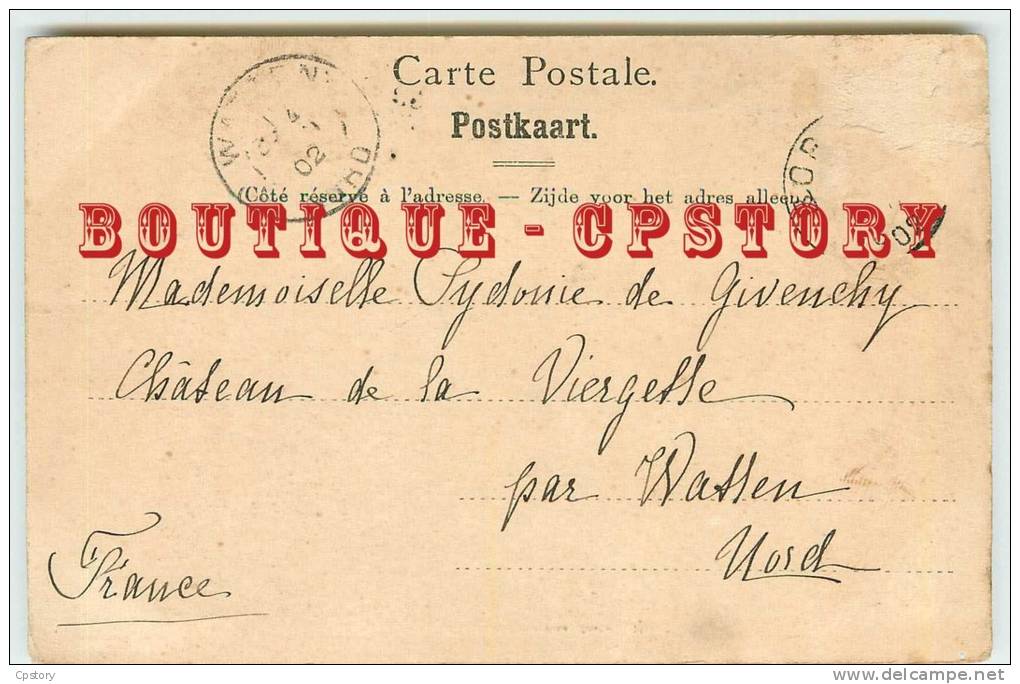 Carte Postale.
Postkaart.
(Côté réservé à l'adresse. — Zijde voor het adres alleen)
WATTEN
NORD
02
BOUTIQUE - CPSTORY
Mademoiselle Sydonie de Givenchy
Château de la Viergette
par Watten
Nord
France
Cpstory
www.delcampe.net